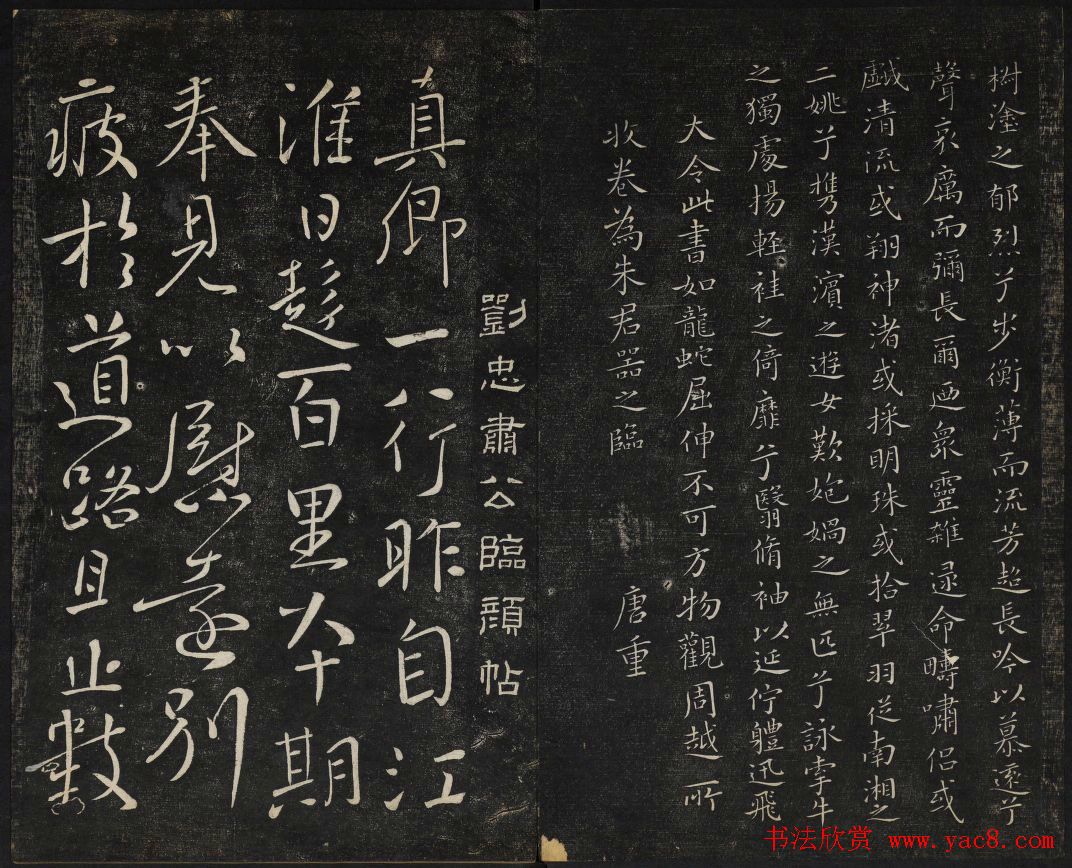 椒塗之郁烈兮步衡薄而流芳超長吟以慕遠兮
聲哀厲而彌長爾迺眾靈雜遝命疇嘯侶或
戲清流或翔神渚或採明珠或拾翠羽從南湘之
二姚兮攜漢濱之遊女歎匏媧之無匹兮詠牽牛
之獨處揚輕袿之倚靡兮翳脩袖以延佇體迅飛
大令此書如龍蛇屈伸不可方物觀周越所
收卷為朱君器之臨
唐重
劉忠肅公臨顏帖
真卿一行昨自江
淮日趍百里本期
奉見以慰遠別
疲於道路且止數
书法欣赏 www.yac8.com